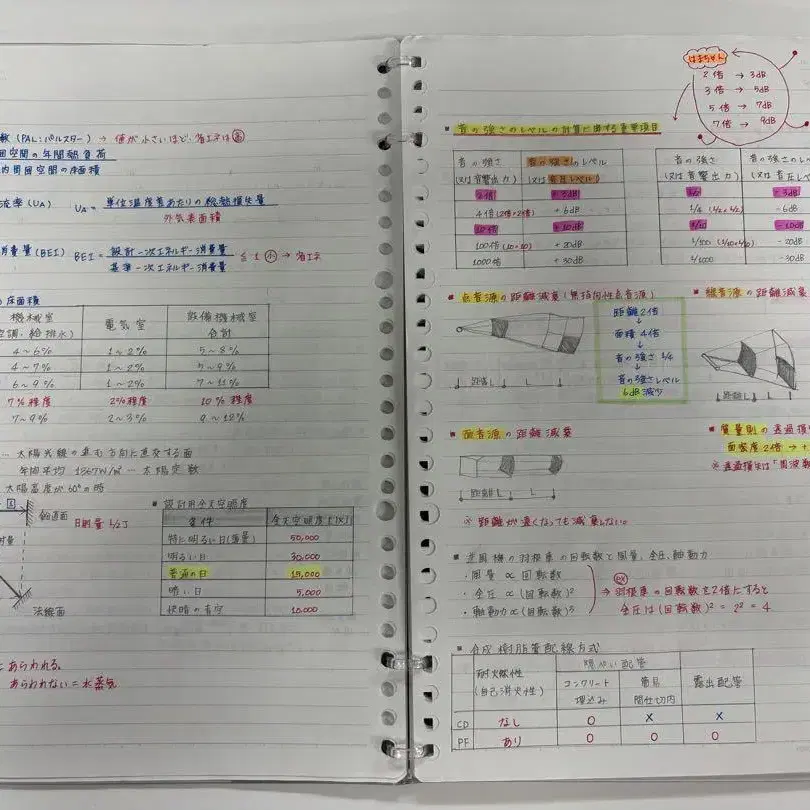 数(PAL:パルスター) → 値が小さいほど、省エネは高
周囲空間の年間熱負荷
内周囲空間の床面積
流率(UA) UA = 単位温度差あたりの総熱損失量
外気表面積
消費量(BEI) BEI = 設計一次エネルギー消費量 ≦ 1 小 → 省エネ
基準一次エネルギー消費量
床面積
機械室 電気室 設備機械室
空調、給排水) 合計
4~6% 1~2% 5~8%
4~7% 1~2% 5~9%
6~9% 1~2% 7~11%
7%程度 2%程度 10%程度
7~9% 2~3% 9~12%
… 太陽光線の進む方向に直交する面
年間平均 1367W/㎡ … 太陽定数
太陽高度が60°の時
鉛直面
日射量 1/2 J
射量
法線面
■ 設計用全天空照度
条件 全天空照度(lx)
特に明るい日(薄曇) 50,000
明るい日 30,000
普通の日 15,000
暗い日 5,000
快晴の青空 10,000
あらわれる。
あらわれない = 水蒸気
はまちゃん
2倍 → 3dB
3倍 → 5dB
5倍 → 7dB
7倍 → 9dB
■ 音の強さのレベルの計算に関する重要項目
音の強さ 音の強さのレベル
(又は音響出力) (又は音圧レベル)
2倍 + 3dB
4倍(2倍×2倍) + 6dB
10倍 + 10dB
100倍(10×10) + 20dB
1000倍 + 30dB
音の強さ 音の強さのレ
(又は音響出力) (又は音圧レ
1/2 - 3dB
1/4 (1/2×1/2) - 6dB
1/10 - 10dB
1/100 (1/10×1/10) - 20dB
1/1000 - 30dB
■ 点音源の距離減衰(無指向性点音源)
距離L L
距離2倍
↓
面積4倍
↓
音の強さ 1/4
↓
音の強さレベル
6dB減少
■ 線音源の距離減衰
距離L L
■ 面音源の距離減衰
距離L L
※ 距離が遠くなっても減衰しない。
■ 質量則の透過損
面密度2倍 → +
※ 透過損失は「周波数
■ 送風機の羽根車の回転数と風量、全圧、軸動力
・風量 ∝ 回転数
・全圧 ∝ (回転数)²
・軸動力 ∝ (回転数)³
ex
⇒ 羽根車の回転数を2倍にすると
全圧は(回転数)² = 2² = 4
■ 合成樹脂管配線方式
耐火燃性 隠ぺい配管 露出配管
(自己消火性) コンクリート
埋込み
間仕切内
CD なし ○ × ×
PF あり ○ ○ ○